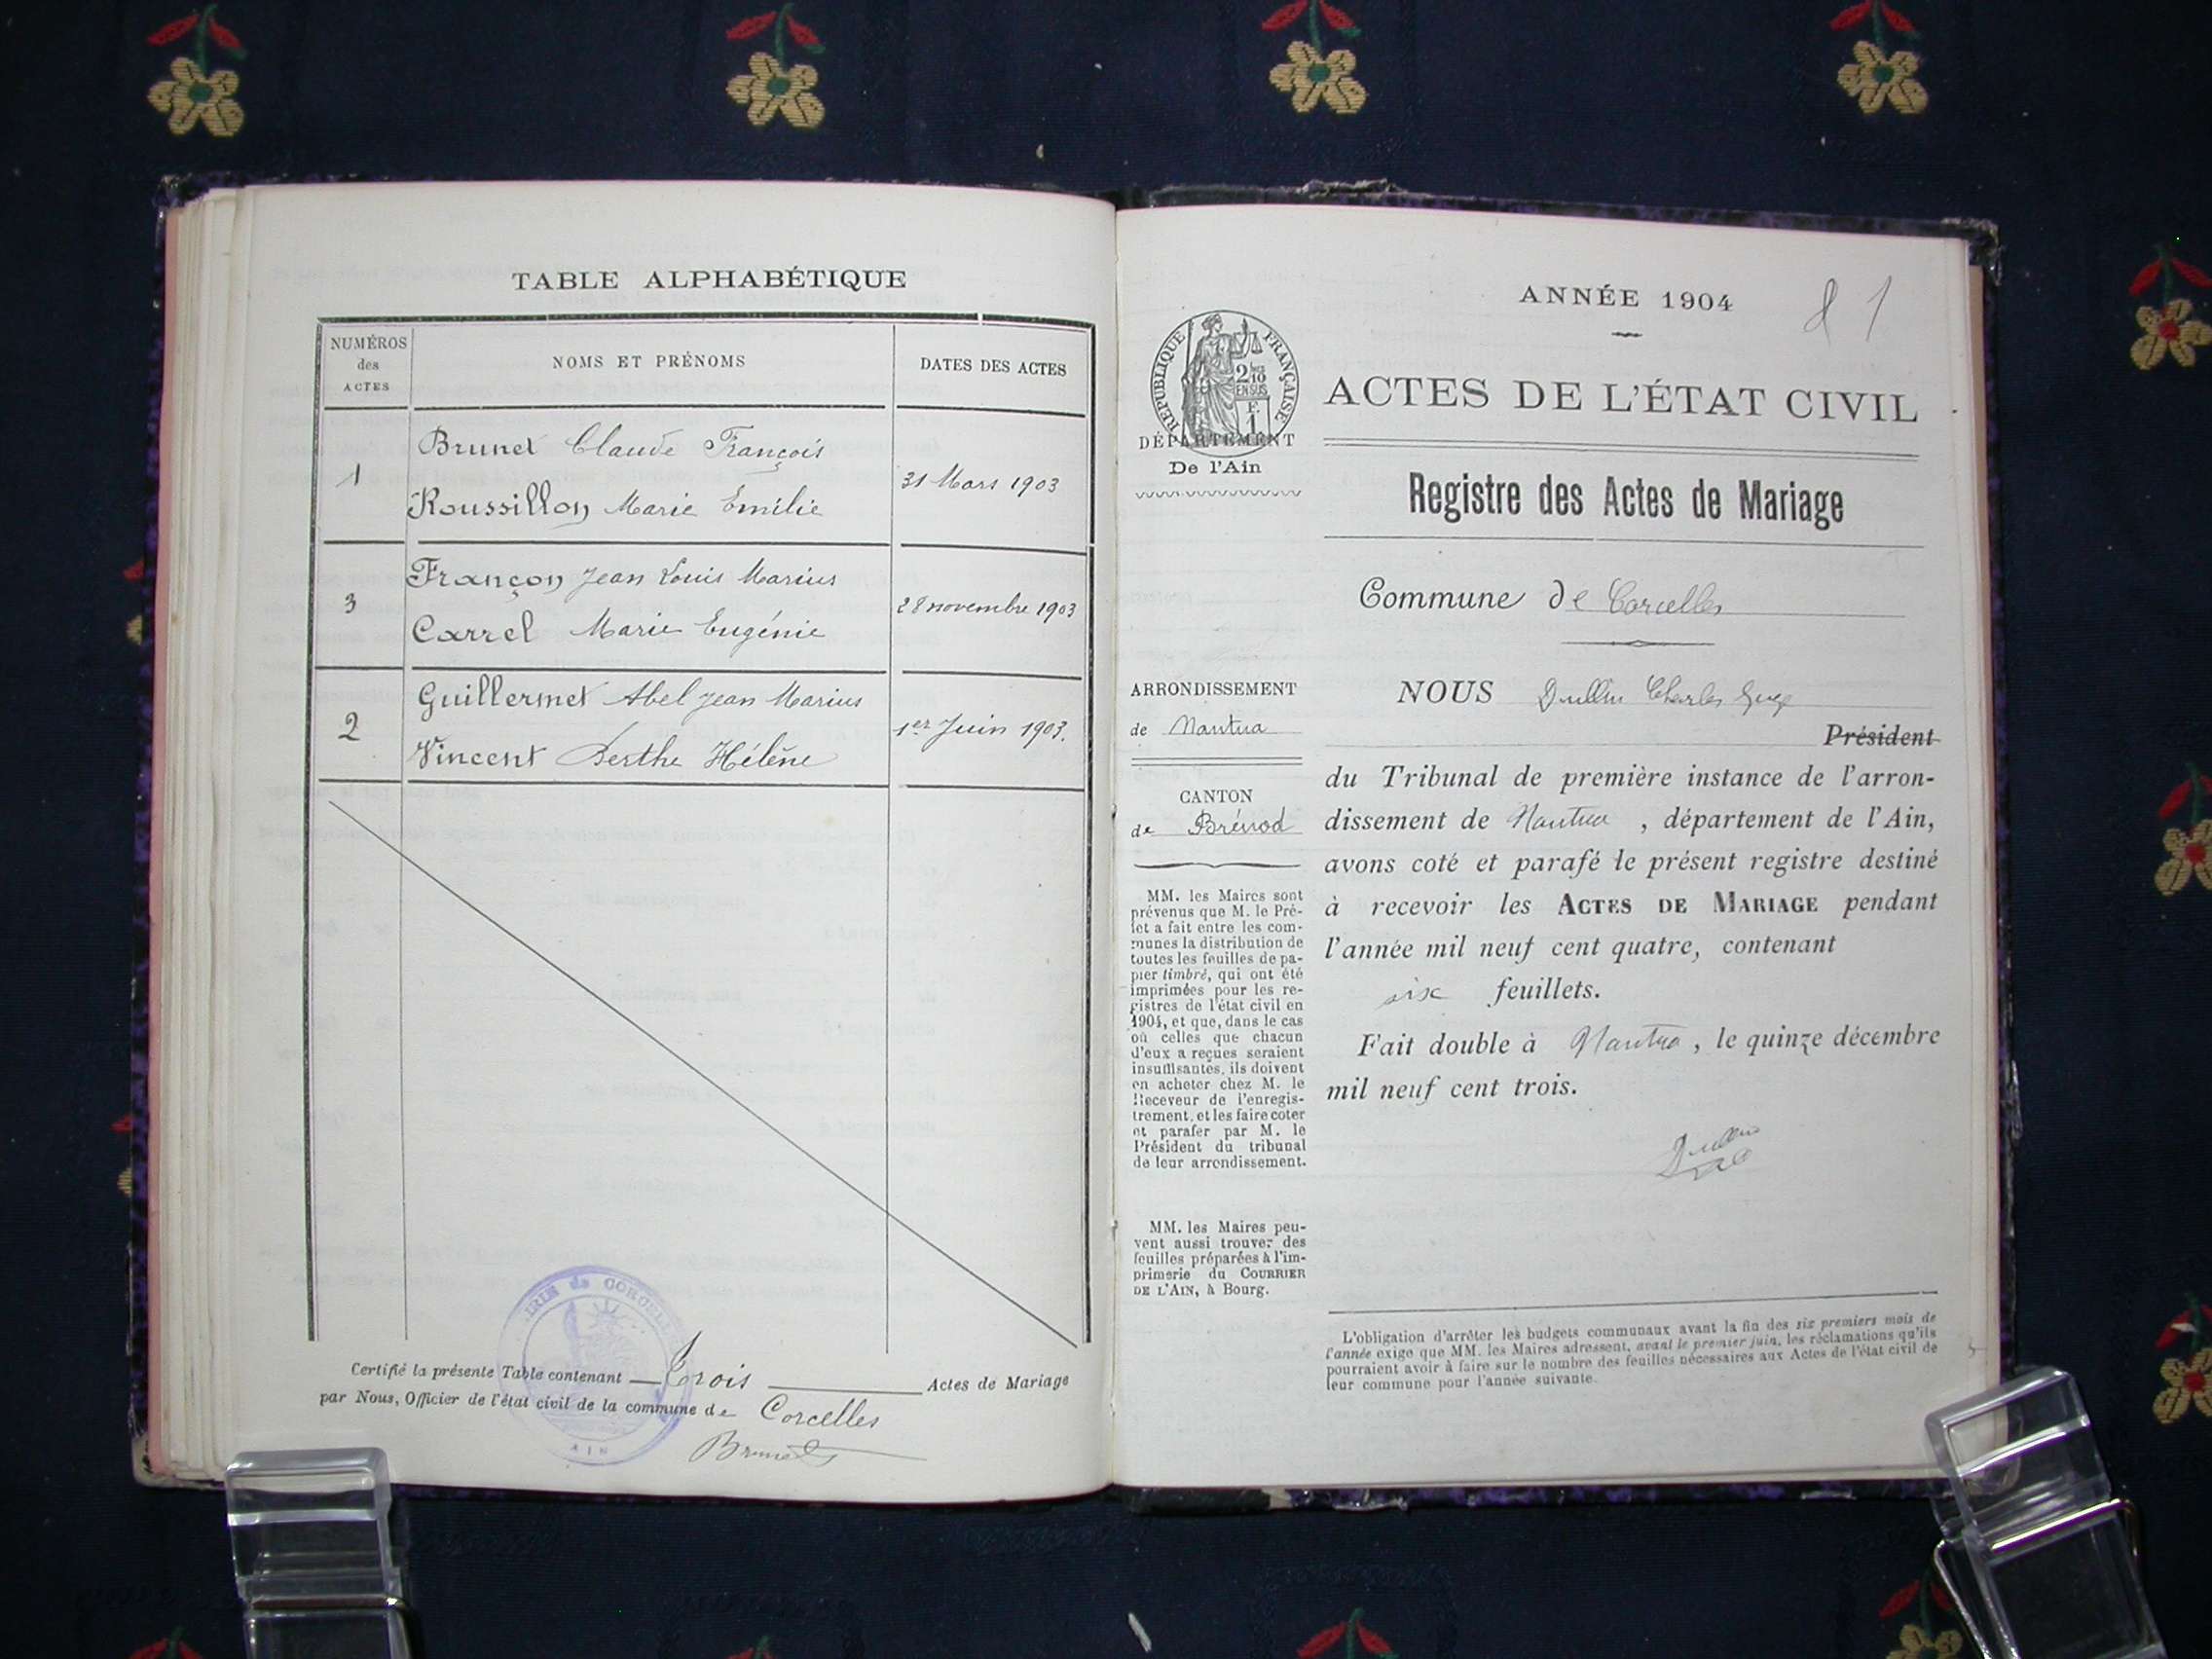 TABLE ALPHABÉTIQUE
NUMÉROS
des
ACTES
NOMS ET PRÉNOMS
DATES DES ACTES
1
Brunet Claude François
Roussillon Marie Emilie
31 Mars 1903
3
Françon Jean Louis Marius
Carrel Marie Eugénie
28 novembre 1903
2
Guillermet Abel Jean Marius
Vincent Berthe Hélène
1er Juin 1903.
Certifié la présente Table contenant Trois Actes de Mariage
par Nous, Officier de l'état civil de la commune de Corcelles
Brunet
AIN
ANNÉE 1904
1
RÉPUBLIQUE FRANÇAISE
2/10
EN SUS
F.
1
DÉPARTEMENT
De l'Ain
ACTES DE L'ÉTAT CIVIL
Registre des Actes de Mariage
Commune de Corcelles
ARRONDISSEMENT
de Nantua
CANTON
de Brénod
MM. les Maires sont
prévenus que M. le Pré-
fet a fait entre les com-
munes la distribution de
toutes les feuilles de pa-
pier timbré, qui ont été
imprimées pour les re-
gistres de l'état civil en
1904, et que, dans le cas
où celles que chacun
d'eux a reçues seraient
insuffisantes, ils doivent
en acheter chez M. le
Receveur de l'enregis-
trement, et les faire coter
et parafer par M. le
Président du tribunal
de leur arrondissement.
MM. les Maires peu-
vent aussi trouver des
feuilles préparées à l'im-
primerie du COURRIER
DE L'AIN, à Bourg.
NOUS Dullin Charles Juge
Président
du Tribunal de première instance de l'arron-
dissement de Nantua , département de l'Ain,
avons coté et parafé le présent registre destiné
à recevoir les ACTES DE MARIAGE pendant
l'année mil neuf cent quatre, contenant
six feuillets.
Fait double à Nantua , le quinze décembre
mil neuf cent trois.
Dullin
L'obligation d'arrêter les budgets communaux avant la fin des six premiers mois de
l'année exige que MM. les Maires adressent, avant le premier juin, les réclamations qu'ils
pourraient avoir à faire sur le nombre des feuilles nécessaires aux Actes de l'état civil de
leur commune pour l'année suivante.